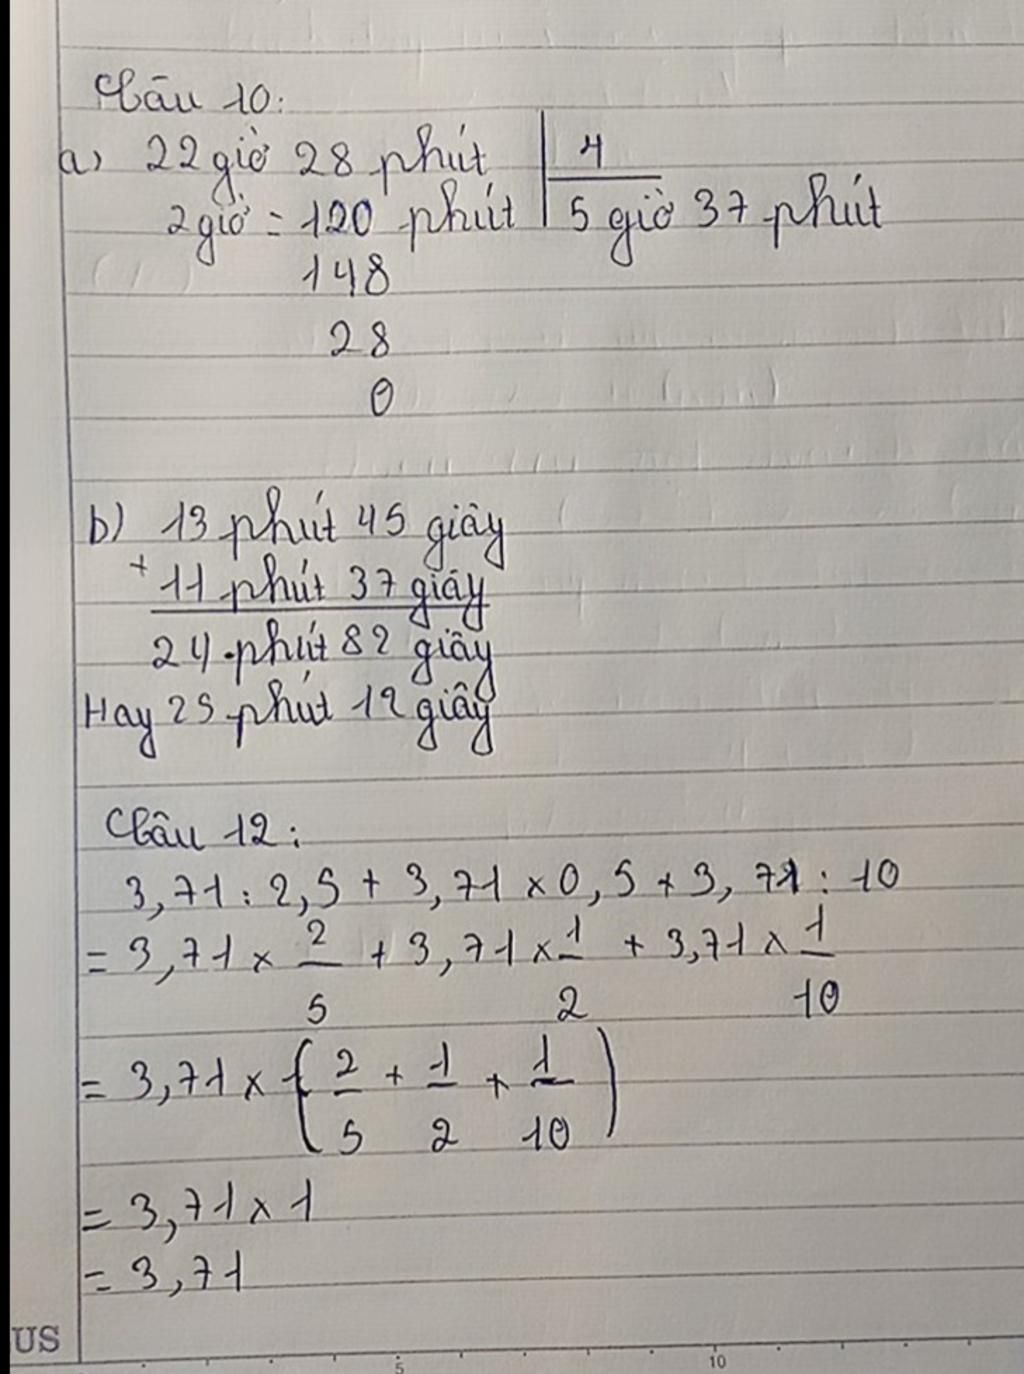 Câu 10:
a) 22 giờ 28 phút | 4
2 giờ = 120 phút | 5 giờ 37 phút
148
28
0
b) 13 phút 45 giây
+ 11 phút 37 giây
24 phút 82 giây
Hay 25 phút 12 giây
Câu 12:
3,71 : 2,5 + 3,71 × 0,5 + 3,71 : 10
= 3,71 × 2/5 + 3,71 × 1/2 + 3,71 × 1/10
= 3,71 × (2/5 + 1/2 + 1/10)
= 3,71 × 1
= 3,71
US
5 10